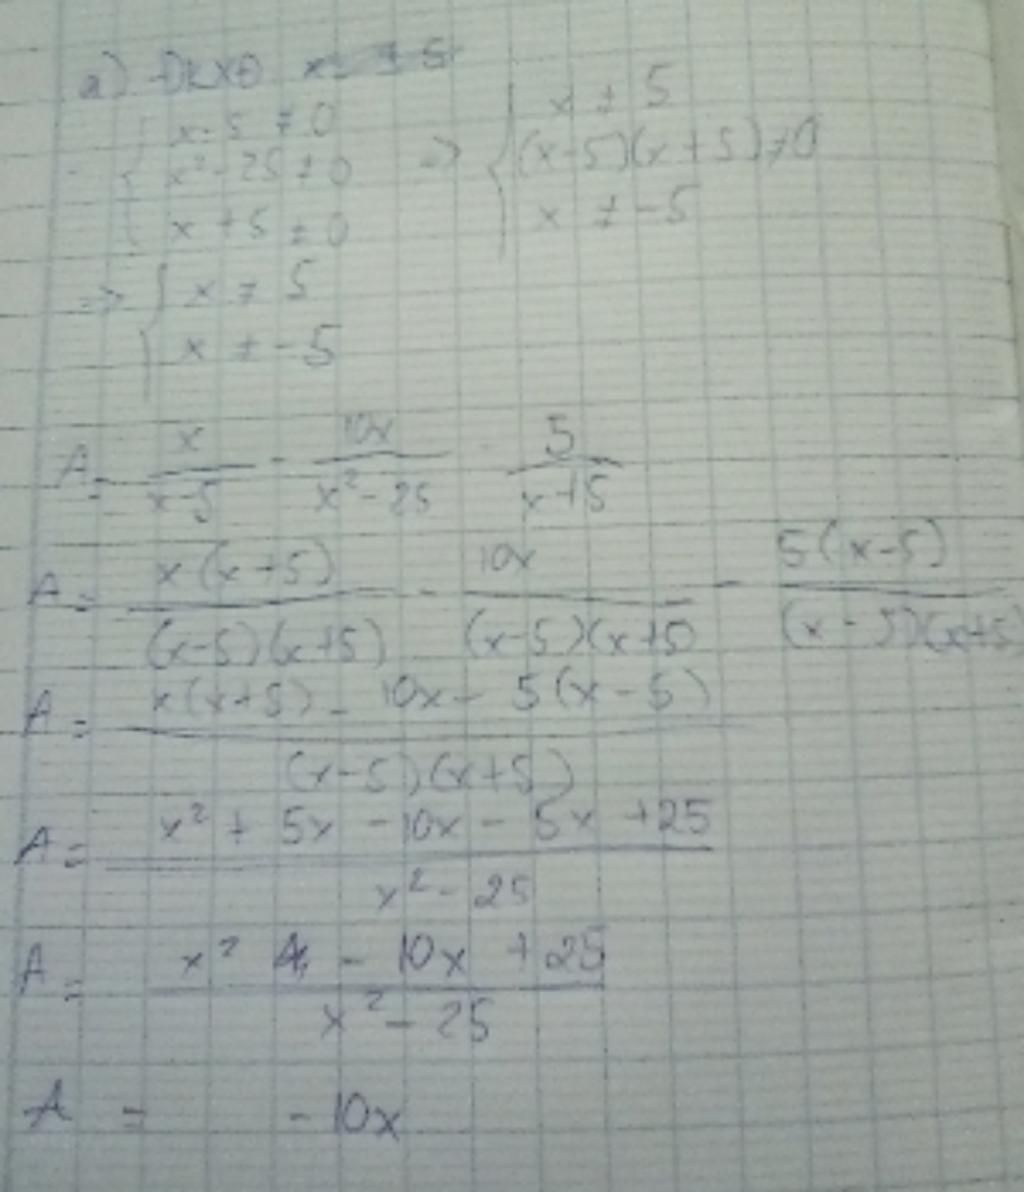 a) ĐKXĐ
{ x-5 ≠ 0
x² - 25 ≠ 0
x + 5 ≠ 0
=> { x ≠ 5
(x-5)(x+5) ≠ 0
x ≠ -5
=> { x ≠ 5
x ≠ -5
A = x/(x-5) - 10x/(x²-25) - 5/(x+5)
A = x(x+5)/((x-5)(x+5)) - 10x/((x-5)(x+5) - 5(x-5)/((x-5)(x+5)
A = (x(x+5) - 10x - 5(x-5))/((x-5)(x+5))
A = (x² + 5x - 10x - 5x + 25)/(x² - 25)
A = (x² - 10x + 25)/(x² - 25)
A = -10x